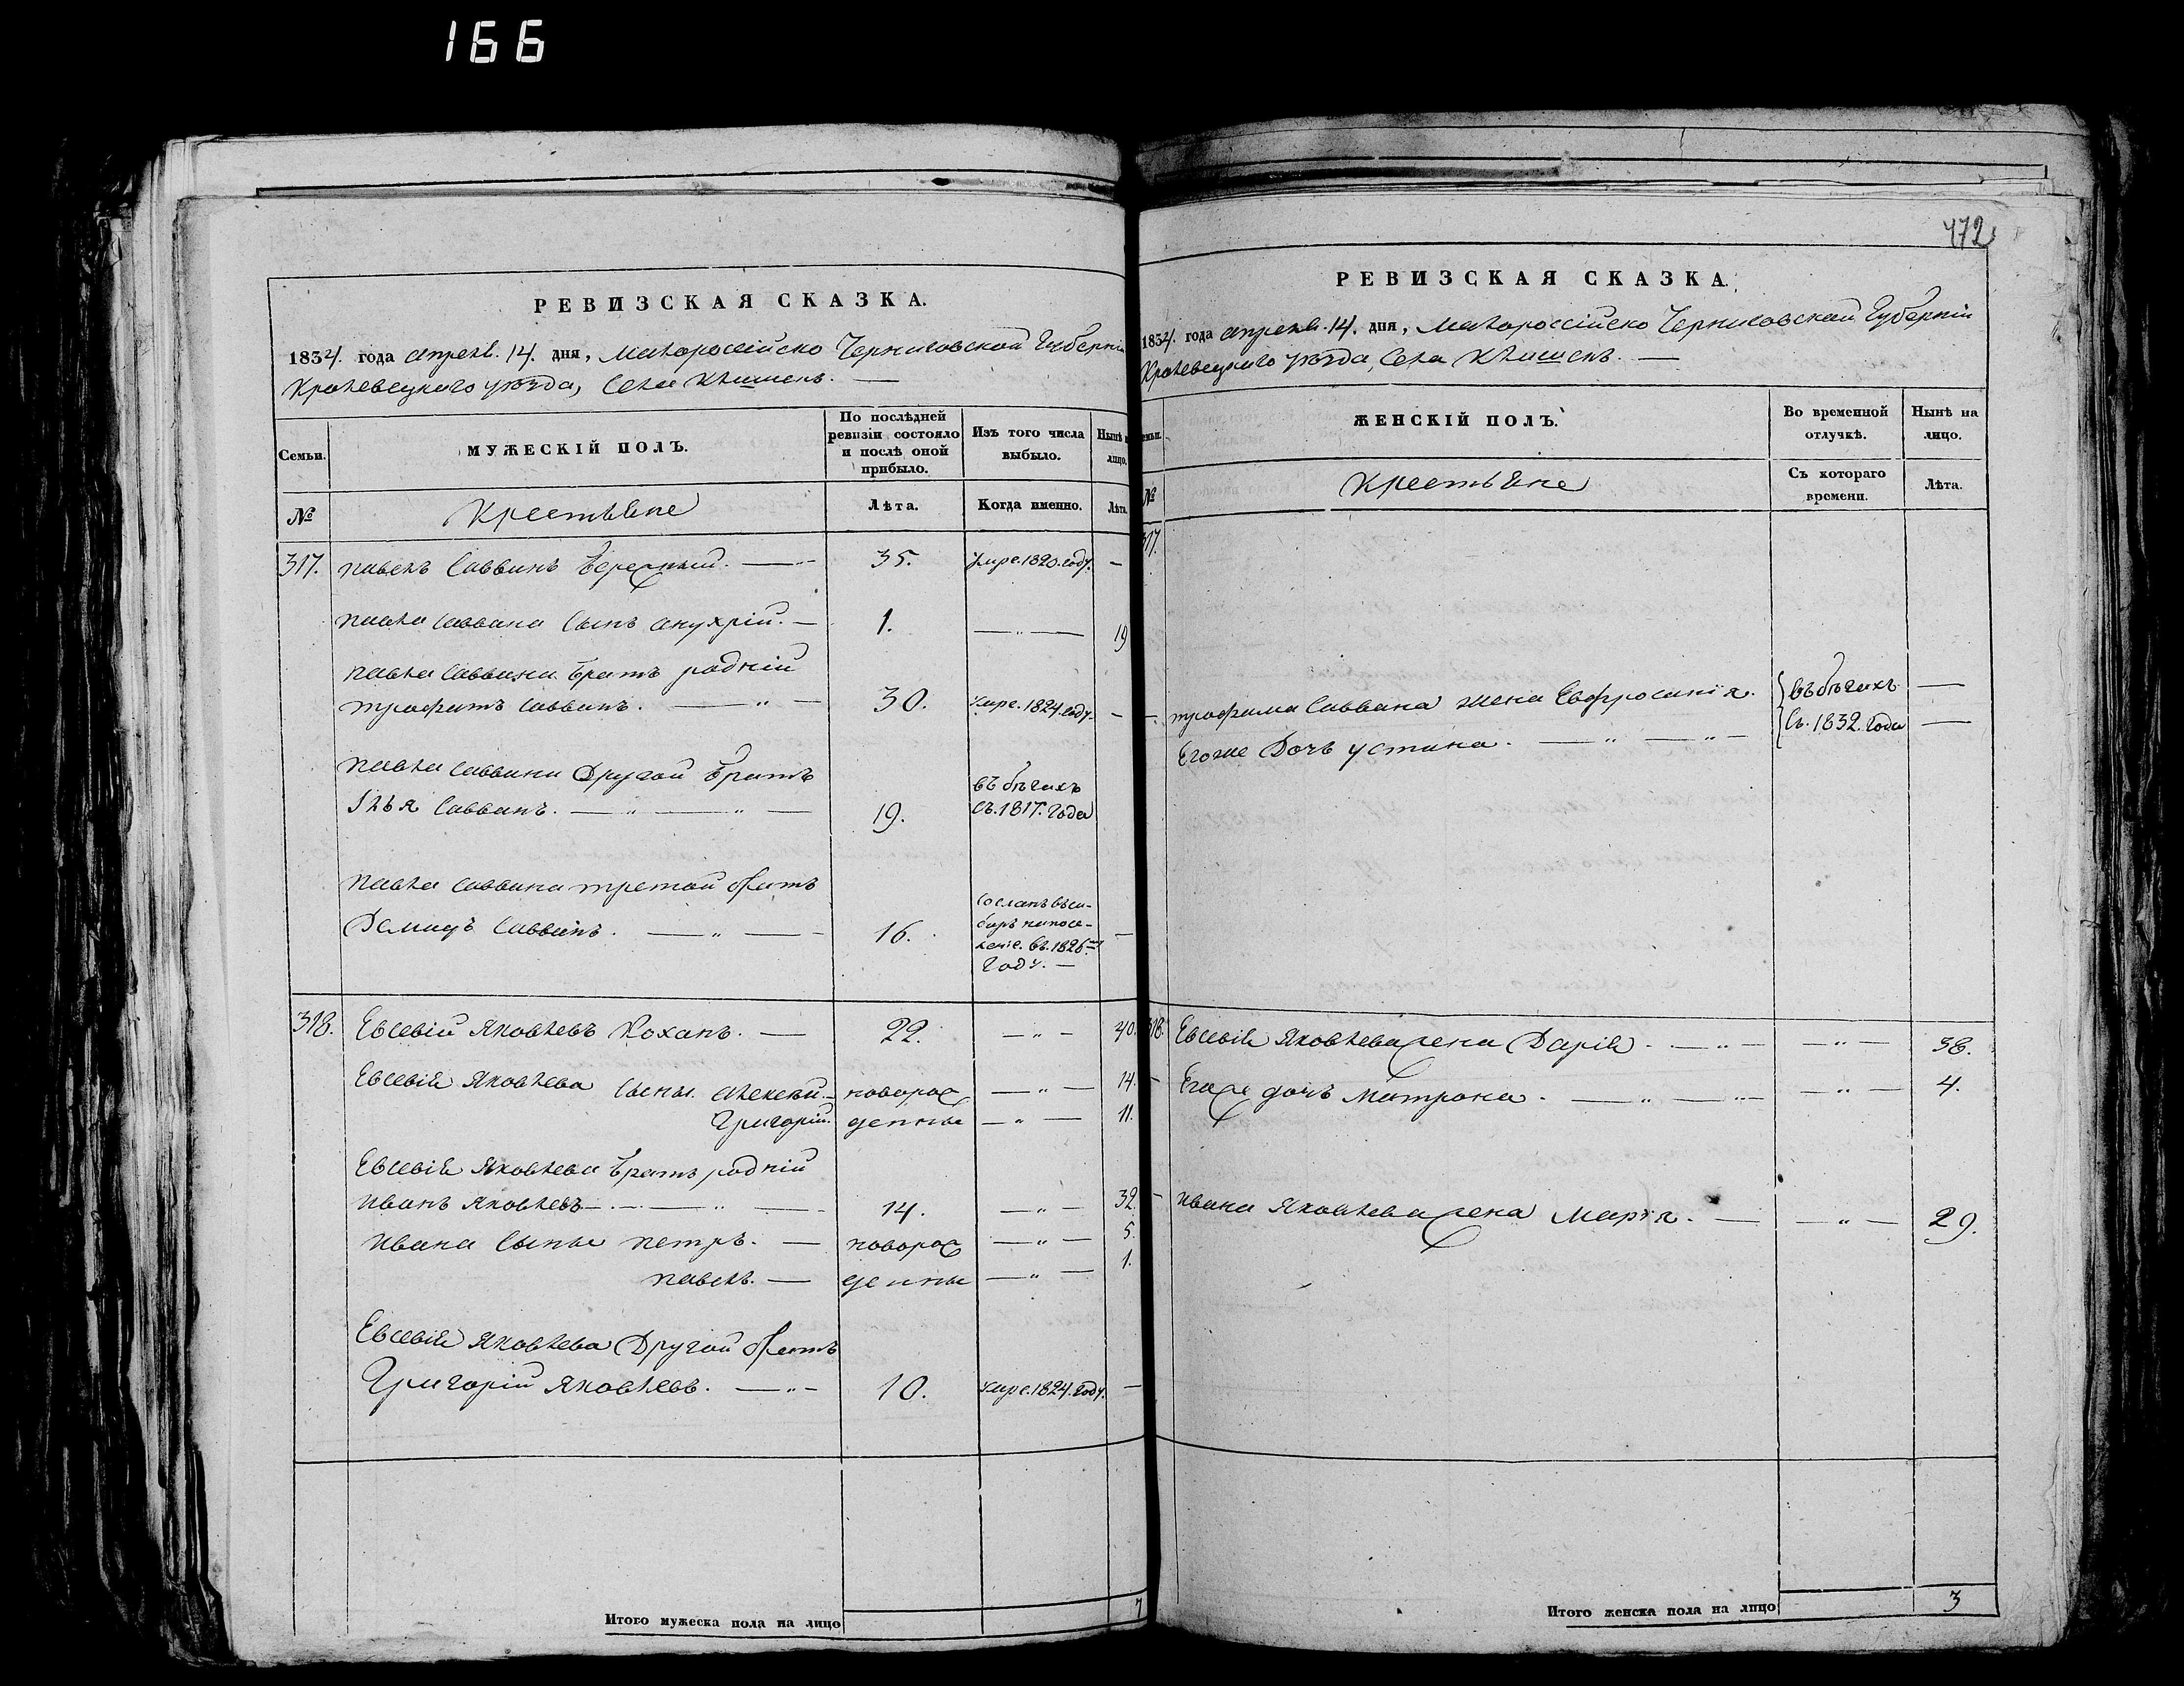 166
РЕВИЗСКАЯ СКАЗКА.
1834. года апреля. 14. дня, Малороссійско Черниговской Губерніи
Кролевецкого уѣзда, Села Клишекъ. —
Семьи.
МУЖЕСКІЙ ПОЛЪ.
По послѣдней ревизіи состояло и послѣ оной прибыло.
Изъ того числа выбыло.
Нынѣ на лицо.
№
Крестьяне
Лѣта.
Когда именно.
Лѣта.
317. павелъ Саввинъ 35. умре. 1820. году. —
павла Саввина Сынъ Онуѳрій. — 1. — " — 19
павла Саввина братъ родній
трофимъ Саввинъ. — " — 30. умре. 1824. году. —
павла Саввина Другой братъ
Илья Саввинъ. — " — " — 19. въ бѣгахъ съ. 1817. Года
павла Саввина третой братъ
Демидъ Саввинъ. — " — 16. Сосланъ въ си-
биръ на посе-
леніе. въ. 1826.мъ
Году. —
318. Евсевій Яковлевъ Коханъ. — 22. — " — 40.
Евсевія Яковлева Сыны. Алексѣй. — новорож — " — 14.
Григорій. денны — " — 11.
Евсевія Яковлева братъ родній
Иванъ Яковлевъ — " — 14. — " — 32.
Ивана Сыны петръ. — новорож — " — 5.
павелъ. — денны — " — 1.
Евсевія Яковлева Другой братъ
Григорій Яковлевъ. — " — 10. умре. 1824. Году. —
Итого мужеска пола на лицо 7
472
РЕВИЗСКАЯ СКАЗКА.
1834. года апреля. 14. дня, Малороссійско Черниговской Губерніи
Кролевецкого уѣзда, Села Клишекъ. —
Семьи.
ЖЕНСКІЙ ПОЛЪ.
Во временной отлучкѣ.
Нынѣ на лицо.
№
Крестьяне
Съ котораго времени.
Лѣта.
317.
трофима Саввина жена Евфросинія. въ бѣгахъ —
Егоже Дочь устина. — " — " — Съ. 1832. Года —
318. Евсевія Яковлева жена Дарія. — " — — " — 38.
Егоже дочь Матрона. — " — " — — " — 4.
Ивана Яковлева жена Марія. — — " — 29.
Итого женска пола на лицо 3